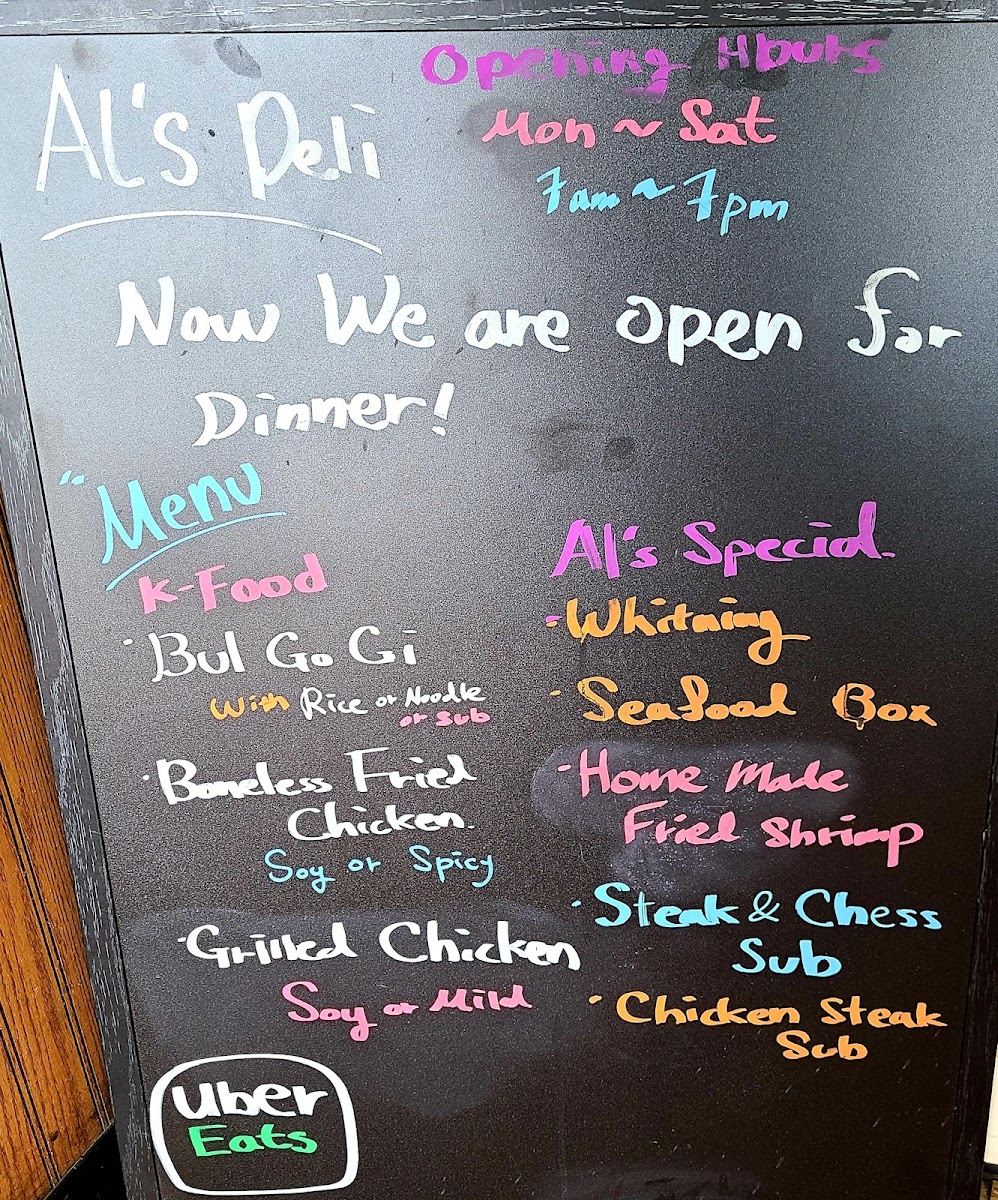 Al's Deli
Opening Hours
Mon ~ Sat
7am ~ 7pm
Now We are open for
Dinner!
"Menu
K-Food
· Bul Go Gi
With Rice or Noodle
or Sub
· Boneless Fried
Chicken.
Soy or Spicy
· Grilled Chicken
Soy or Mild
Uber
Eats
Al's Special.
- Whitning
- Seafood Box
- Home Made
Fried Shrimp
· Steak & Chess
Sub
· Chicken Steak
Sub